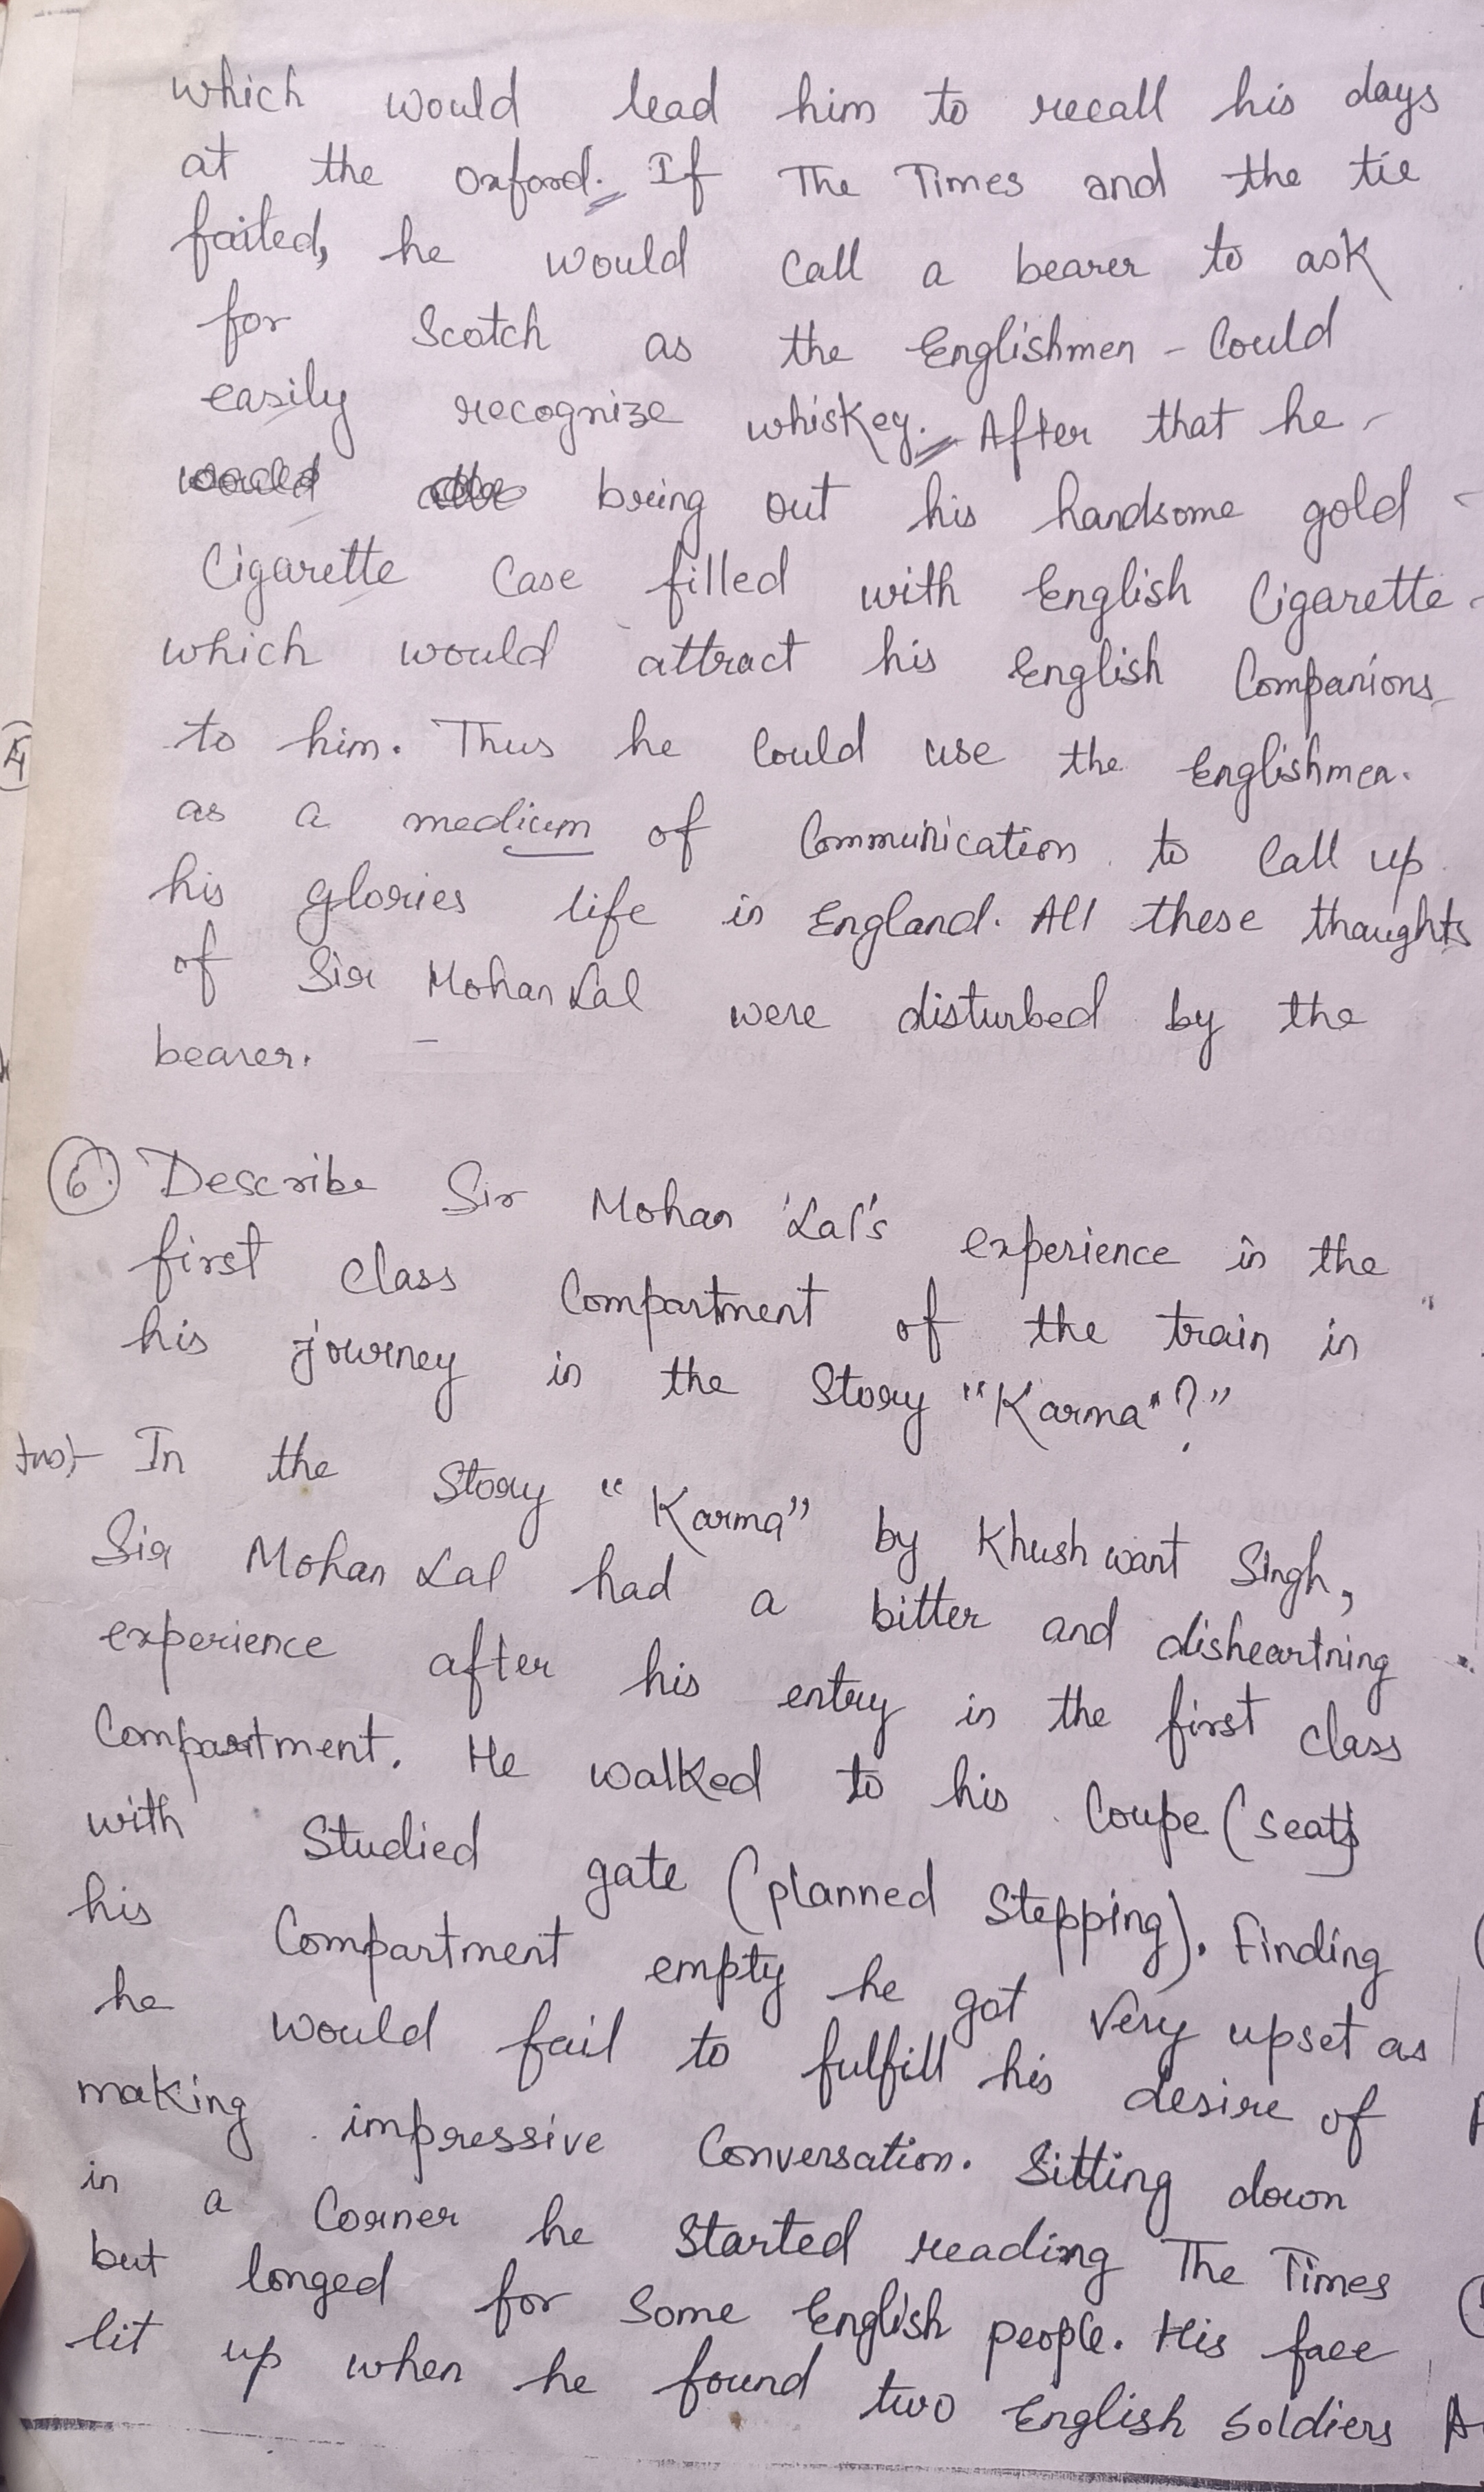 which would lead him to recall his days
at the Oxford. If The Times and the tie
failed, he would call a bearer to ask
for Scotch as the Englishmen - Could
easily recognize whiskey. After that he
would bring out his handsome gold
Cigarette Case filled with English Cigarette
which would attract his English Companions
to him. Thus he Could use the Englishmen.
as a medium of Communication to Call up
his glories life in England. All these thoughts
of Sir Mohan Lal were disturbed by the
bearer.
6. Describe Sir Mohan Lal's experience in the
first class Compartment of the train in
his journey in the Story "Karma"?"
Ans:- In the Story "Karma" by Khushwant Singh,
Sir Mohan Lal had a bitter and disheartning
experience after his entry in the first class
Compartment. He walked to his Coupe (seat)
with Studied gate (planned Stepping). Finding
his Compartment empty he got very upset as
he would fail to fulfill his desire of
making impressive Conversation. Sitting down
in a Corner he Started reading The Times
but longed for Some English people. His face
lit up when he found two English Soldiers